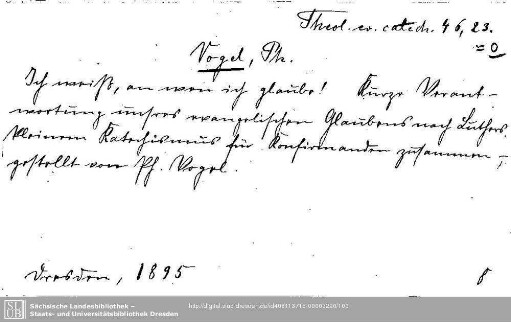 Theol. ev. catech. 46, 23.
= 0
Vogel, Ph.
Ich weiß, an wen ich glaube! Kurze Verant-
wortung unsres evangelischen Glaubens nach Luthers
kleinem Katechismus für Konfirmanden zusammen-
gestellt von Ph. Vogel.
Dresden, 1895
8
Sächsische Landesbibliothek –
Staats- und Universitätsbibliothek Dresden